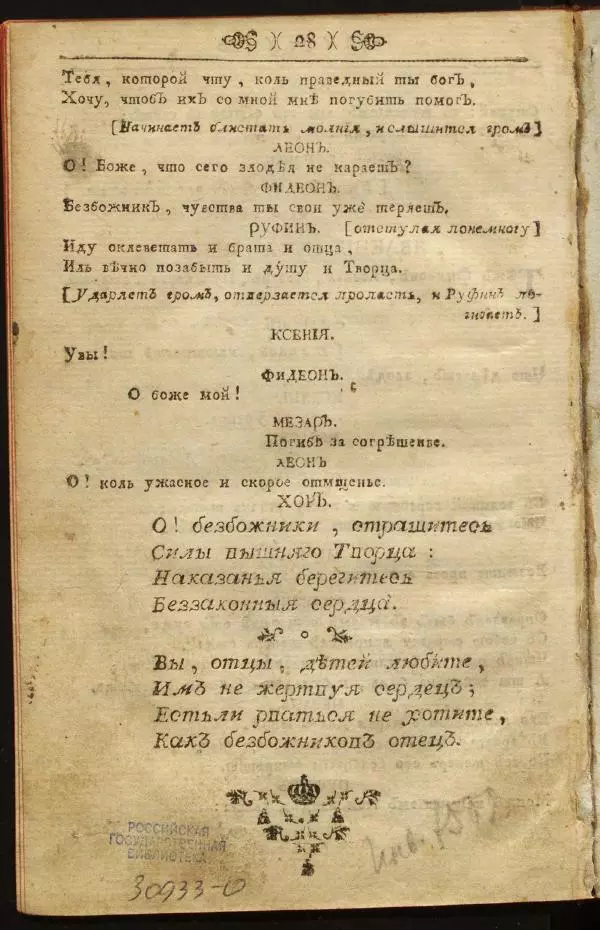 28
Тебя, которой чту, коль праведный ты богъ,
Хочу, чтобъ ихъ со мной мнѣ погубить помогъ.
[Начинаетъ блистать молнія, и слышится громъ]
ЛЕОНЪ.
О! Боже, что сего злодѣя не караешъ?
ФИДЕОНЪ.
Безбожникъ, чувства ты свои уже теряешъ.
РУФИНЪ. [отступая понемногу]
Иду оклеветать и брата и отца,
Иль вѣчно позабыть и душу и Творца.
[Ударяетъ громъ, отверзается пропасть, и Руфинъ по-
гибаетъ.]
КСЕНІЯ.
Увы!
ФИДЕОНЪ.
О боже мой!
МЕЗАРЪ.
Погибъ за согрѣшенье.
ЛЕОНЪ
О! коль ужасное и скорое отмщенье.
ХОРЪ.
О! безбожники, страшитесь
Силы вышняго Творца:
Наказанья берегитесь
Беззаконныя сердца.
Вы, отцы, дѣтей любите,
Имъ не жертвуя сердецъ;
Естьли рваться не хотите,
Какъ безбожниковъ отецъ.
РОССИЙСКАЯ
ГОСУДАРСТВЕННАЯ
БИБЛИОТЕКА
30933-0
Инв.